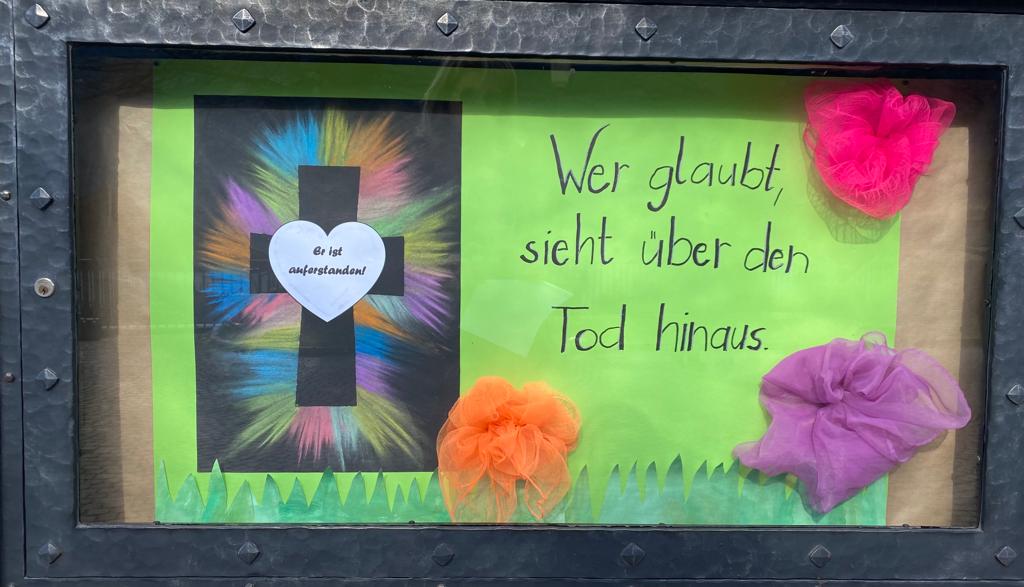 Er ist
auferstanden!
Wer glaubt,
sieht über den
Tod hinaus.